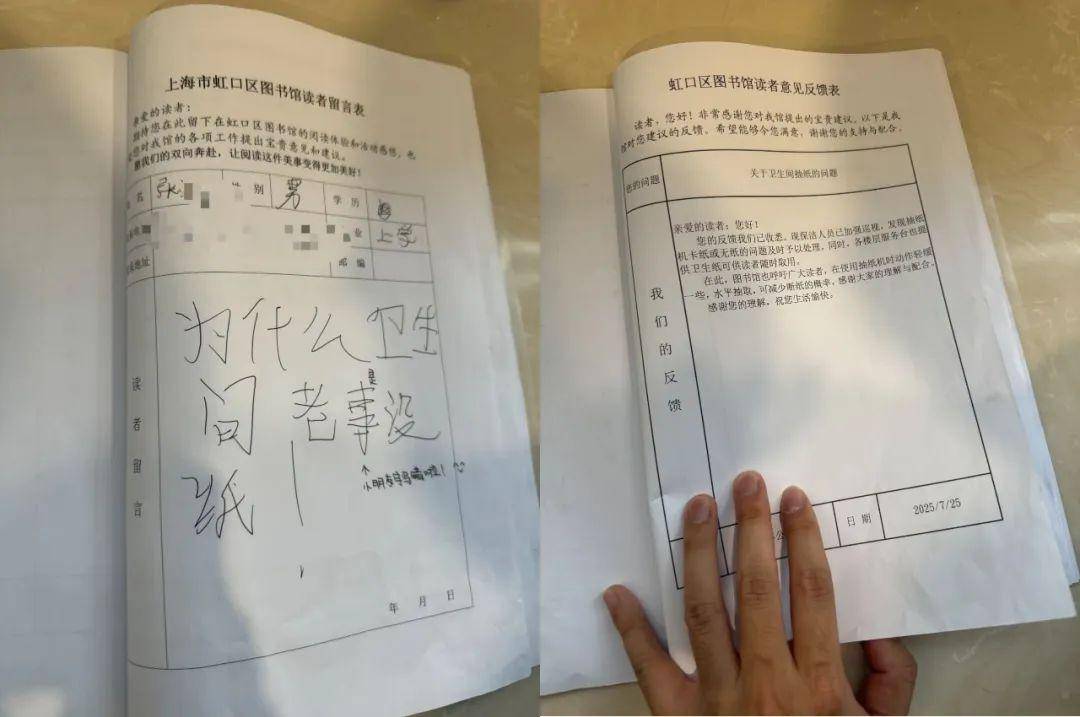 上海市虹口区图书馆读者留言表
亲爱的读者:
期待您在此留下在虹口区图书馆的阅读体验和活动感想,也
您对我馆的各项工作提出宝贵意见和建议。
我们的双向奔赴,让阅读这件美事变得更加美好!
名 张 性 别 男 学 历
业 上学
地址 邮 编
读者留言
为什么卫生
间老事没
是
纸!
小朋友字写错啦!
年 月 日
虹口区图书馆读者意见反馈表
读者,您好!非常感谢您对我馆提出的宝贵建议。以下是我
馆对您建议的反馈。希望能够令您满意,谢谢您的支持与配合。
您的问题 关于卫生间抽纸的问题
我们的反馈
亲爱的读者:您好!
您的反馈我们已收悉。现保洁人员已加强巡视,发现抽纸
机卡纸或无纸的问题及时予以处理。同时,各楼层服务台也提
供卫生纸可供读者随时取用。
在此,图书馆也呼吁广大读者,在使用抽纸机时动作轻缓
一些,水平抽取,可减少断纸的概率,感谢大家的理解与配合。
感谢您的理解,祝您生活愉快。
日 期 2025/7/25